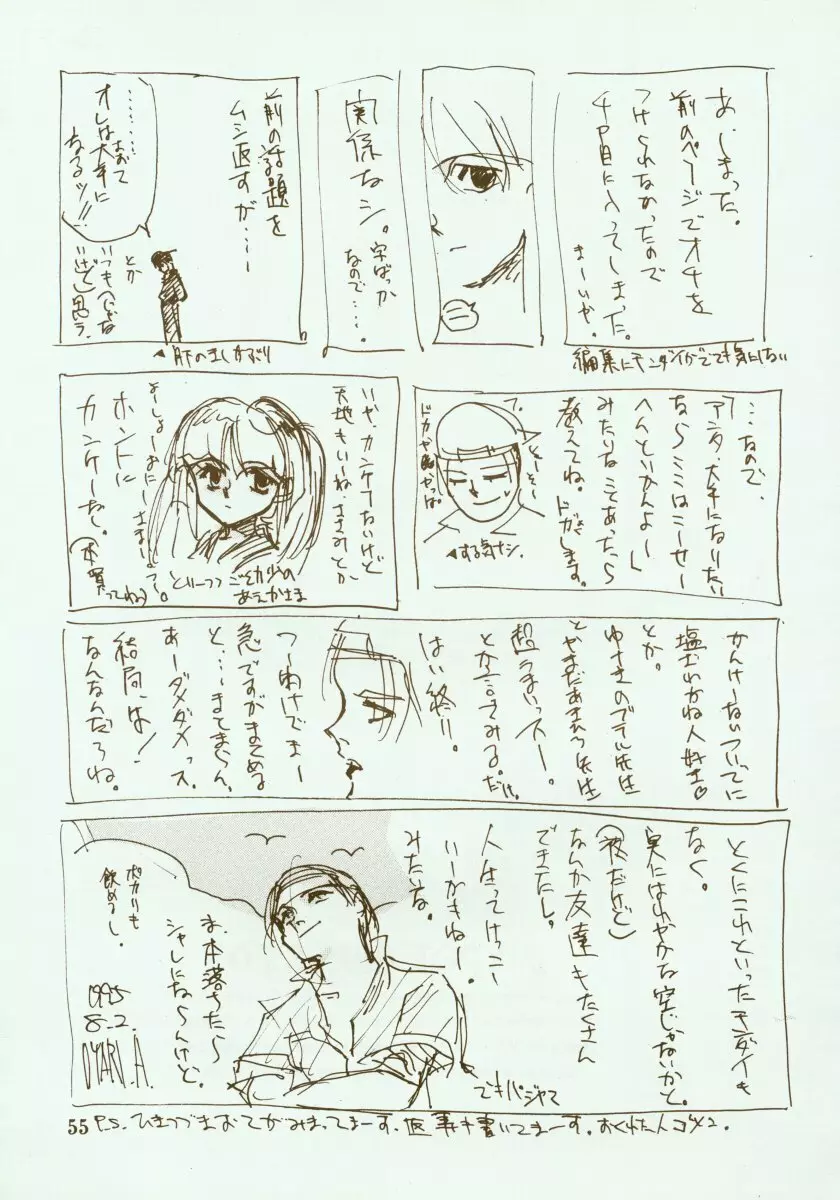 あ、しまった。
前のページでオチを
つけられなかったので
4P目に入ってしまった。
まーいいか。
編集にモンダイがでても気にしない
関係ナシ。
字ばっか
なので…。
前の話題を
ムシ返すが…
………
オレは大手に
なるッ!!
とか
いつもへーぜんな
思う。
…なので、
アンタ、大手になりたい
なら
へんといかんよー」
みたいなことあったら
教えてね。ドがします。
とーそー
◀する気ナシ。
いや、カンケーないけど
天地もいーね、ささみとか
よーしょーおにーさまーって。
ホントに
カンケーねー。
(本買ってね)
ご幼少の
あえかさま
かんけーないついでに
とか。
とやまだあきひろ先生
超うまいっスー。
とか言ってみる。だけ。
はい終り。
つーわけでまー
急ですがまとめる
と…まてまくん。
あーダメダメっス
結局、は!
なんなんだろね。
とくにこれといったモンダイも
なく。
実にはれやかな空じゃないかと。
(夜だけど)
なんか友達もたくさん
できたし。
人生ってけっこー
いーかもねー。
みたいな。
ま、本落ちたら
シャレにならんけど。
ポカリも
飲めるし。
1995
8.2.
OYARI.A.
55 P.S. ひきつづきおてがみまってまーす、返事も書いてまーす。おくれた人ゴメン.